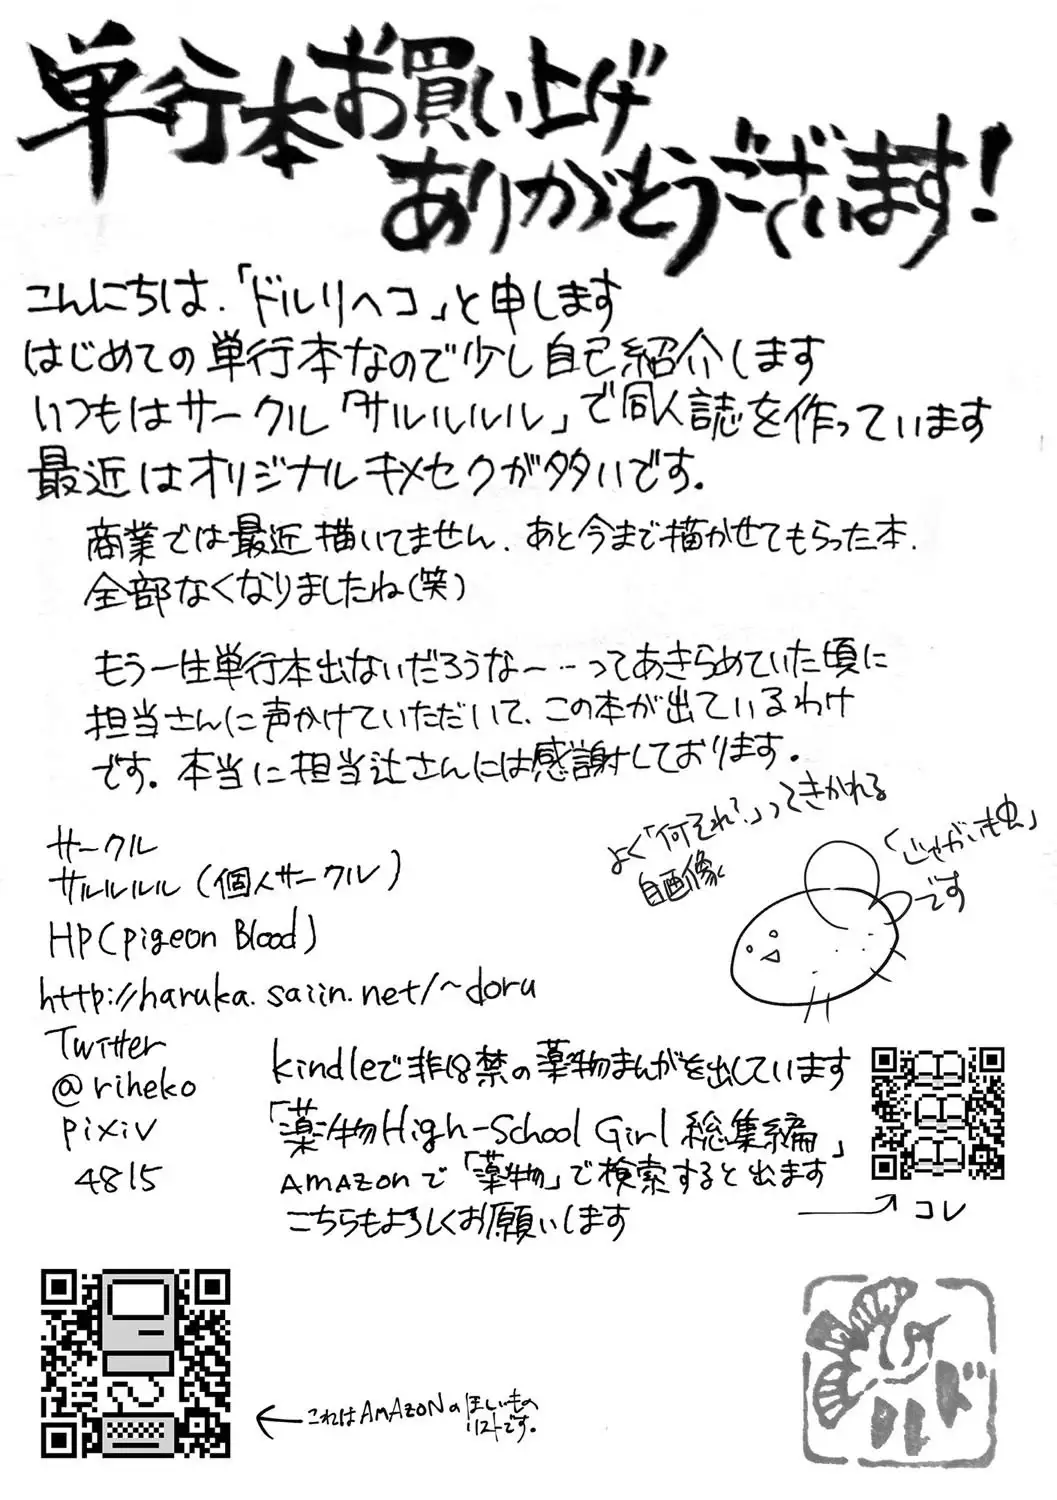 単行本お買い上げ
ありがとうございます!
こんにちは.「ドルリヘコ」と申します
はじめての単行本なので少し自己紹介します
いつもはサークル「サルルルル」で同人誌を作っています
最近はオリジナルキメセクが多いです.
商業では最近描いてません. あと今まで描かせてもらった本.
全部なくなりましたね(笑)
もう一生単行本出ないだろうな~‥ってあきらめていた頃に
担当さんに声かけていただいて、この本が出ているわけ
です。本当に担当辻さんには感謝しております.
よく「何それ?」ってきかれる
自画像
「じゃがいも虫」
です
サークル
サルルルル(個人サークル)
HP(pigeon Blood)
http://haruka.saiin.net/~doru
Twitter
@riheko
pixiv
4815
kindleで非18禁の薬物まんがを出しています
「薬物High-School Girl 総集編」
AMAZonで「薬物」で検索すると出ます
こちらもよろしくお願いします
コレ
これはAMAZONのほしいもの
リストです。
ドルリ